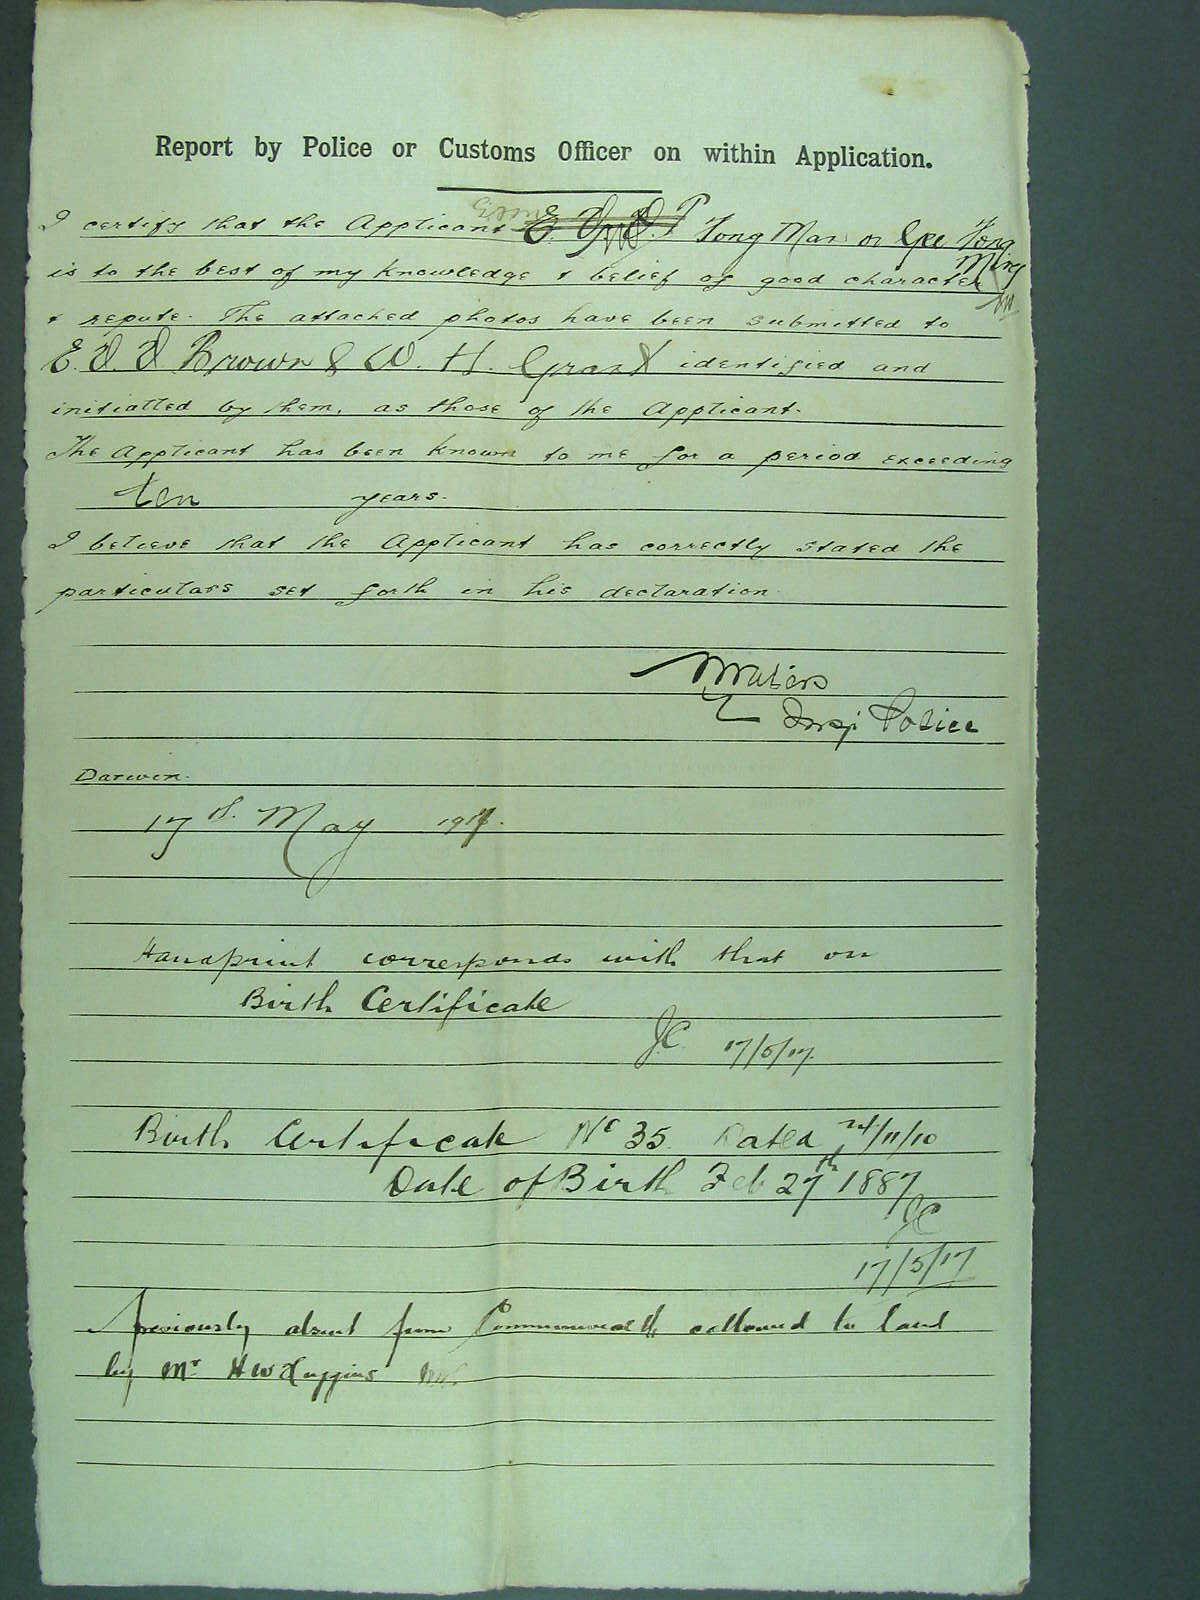 Report by Police or Customs Officer on within Application.
I certify that the Applicant Fong Mar or Gee Fong
Ming
is to the best of my knowledge & belief of good character
& repute. The attached photos have been submitted to
E. D. D. Brown & W. H. Grant identified and
initialled by them, as those of the Applicant.
The Applicant has been known to me for a period exceeding
ten years.
I believe that the Applicant has correctly stated the
particulars set forth in his declaration
NWaters
Insp Police
Darwin.
17th. May 1917.
Handprint corresponds with that on
Birth Certificate
J.C. 17/5/17.
Birth Certificate No 35 Dated 24/11/10
Date of Birth Feb 27th 1887
JC
17/5/17
Previously absent from Commonwealth allowed to land
by Mr H W Huggins